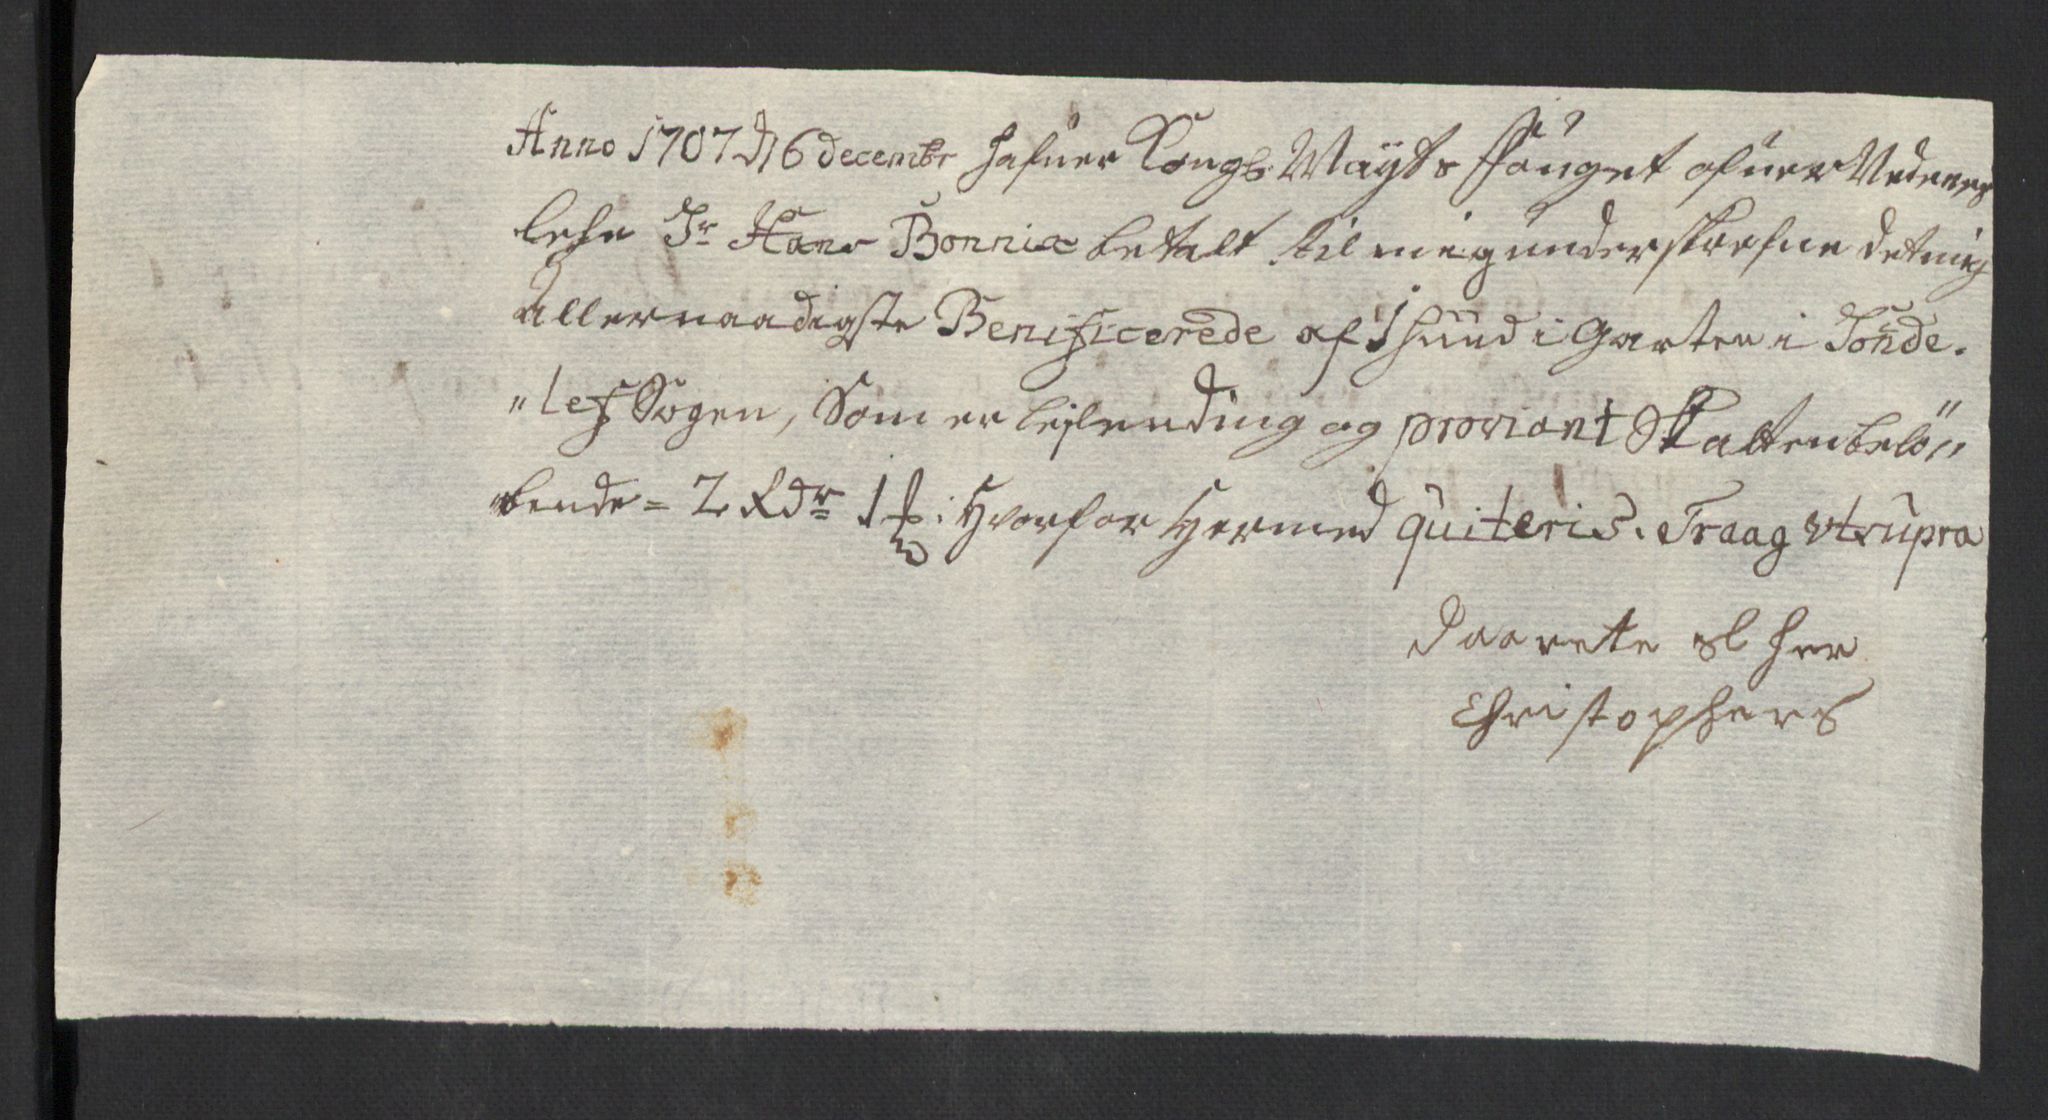 Anno 1707 d 16 decembr hafuer Kongl: Mayts ffouget ofuer Nedenes
lehn Sr Hans Bonnix betalt til mig underskrefne det mig
allernaadigste Benificerede af 1 hüüd i Garten i Tönde-
"lef Sogen, Som er leylending og proviant Skatten belö"
bende = 2 Rdr 1 ß: Hvorfor Hermed quiteris. Traag Ut supra
Daarete Sl her
Christophers